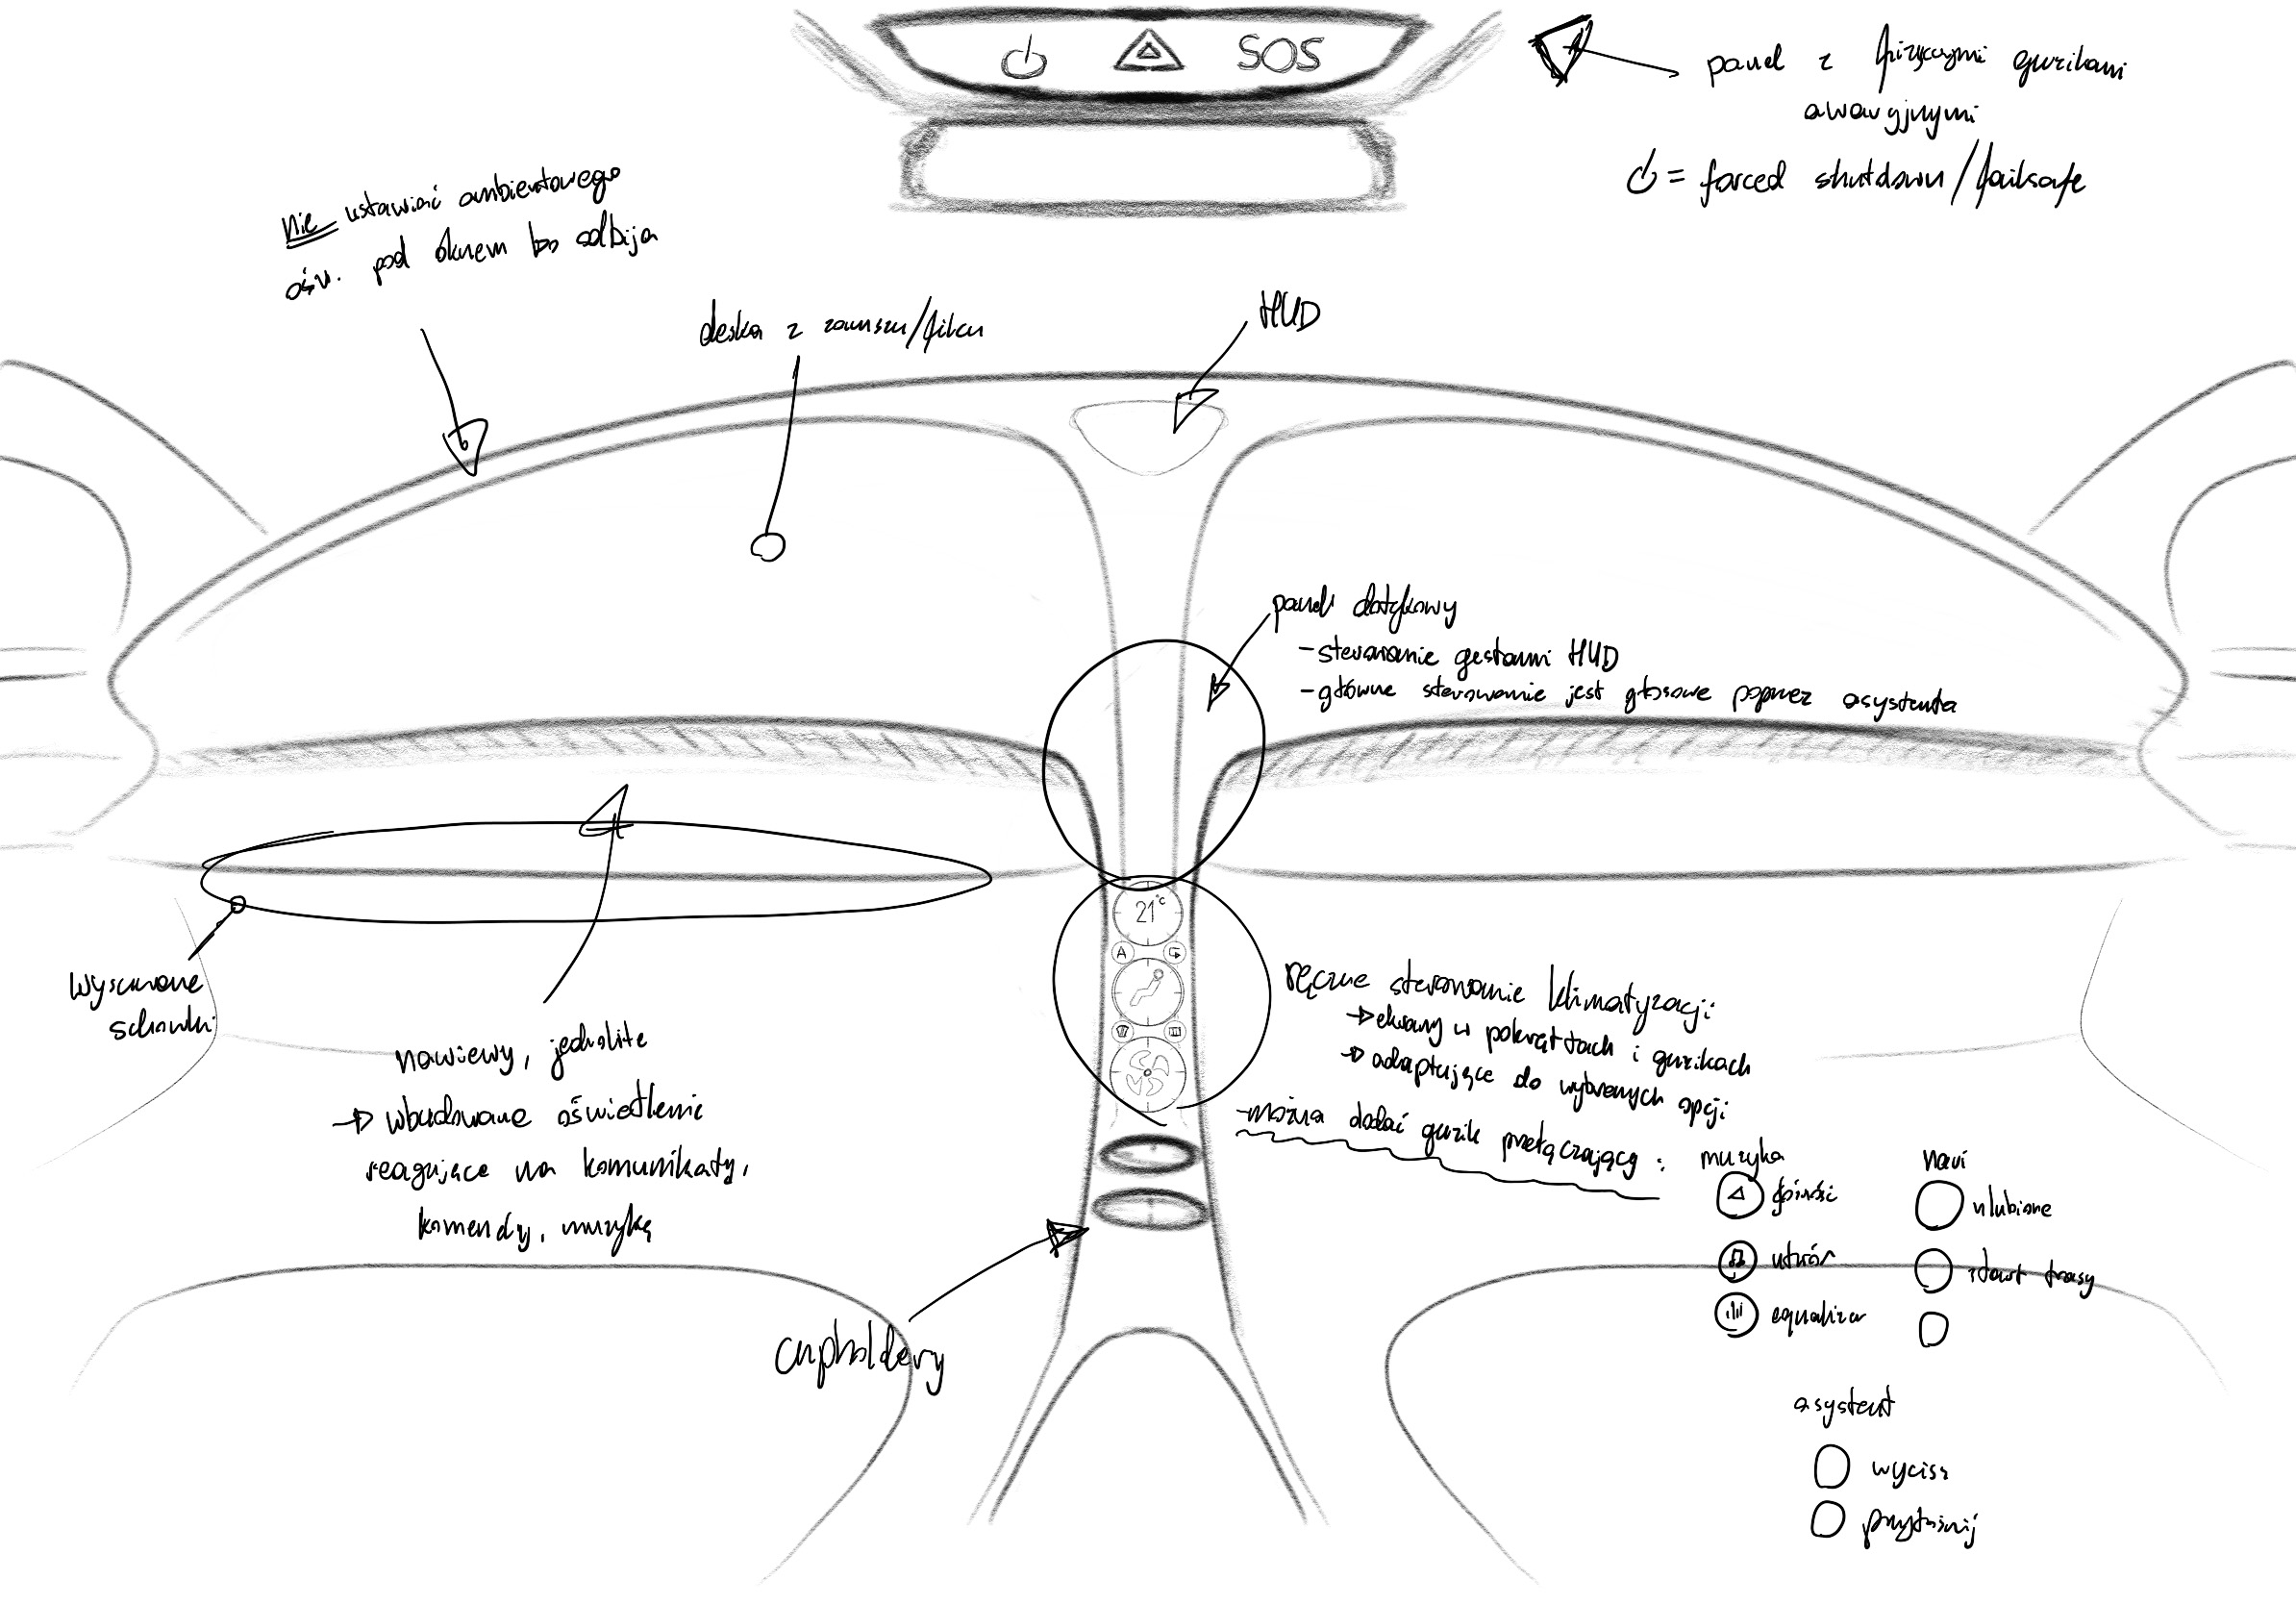 SOS
panel z fizycznymi guzikami
awaryjnymi
= forced shutdown/failsafe
nie ustawiać ambientowego
ośw. pod oknem bo odbija
deska z zamszu/filcu
HUD
panel dotykowy
- sterowanie gestami HUD
- główne sterowanie jest głosowe poprzez asystenta
21°C
A
wysuwane
schowki
nawiewy, jednolite
→ wbudowane oświetlenie
reagujące na komunikaty,
komendy, muzykę
ręczne sterowanie klimatyzacji
→ ekrany w pokrętłach i guzikach
→ adaptujące do wybranych opcji
- można dodać guzik przełączający:
muzyka
głośność
utwór
equalizer
navi
ulubione
start trasy
cupholdery
asystent
wycisz
przytłumij